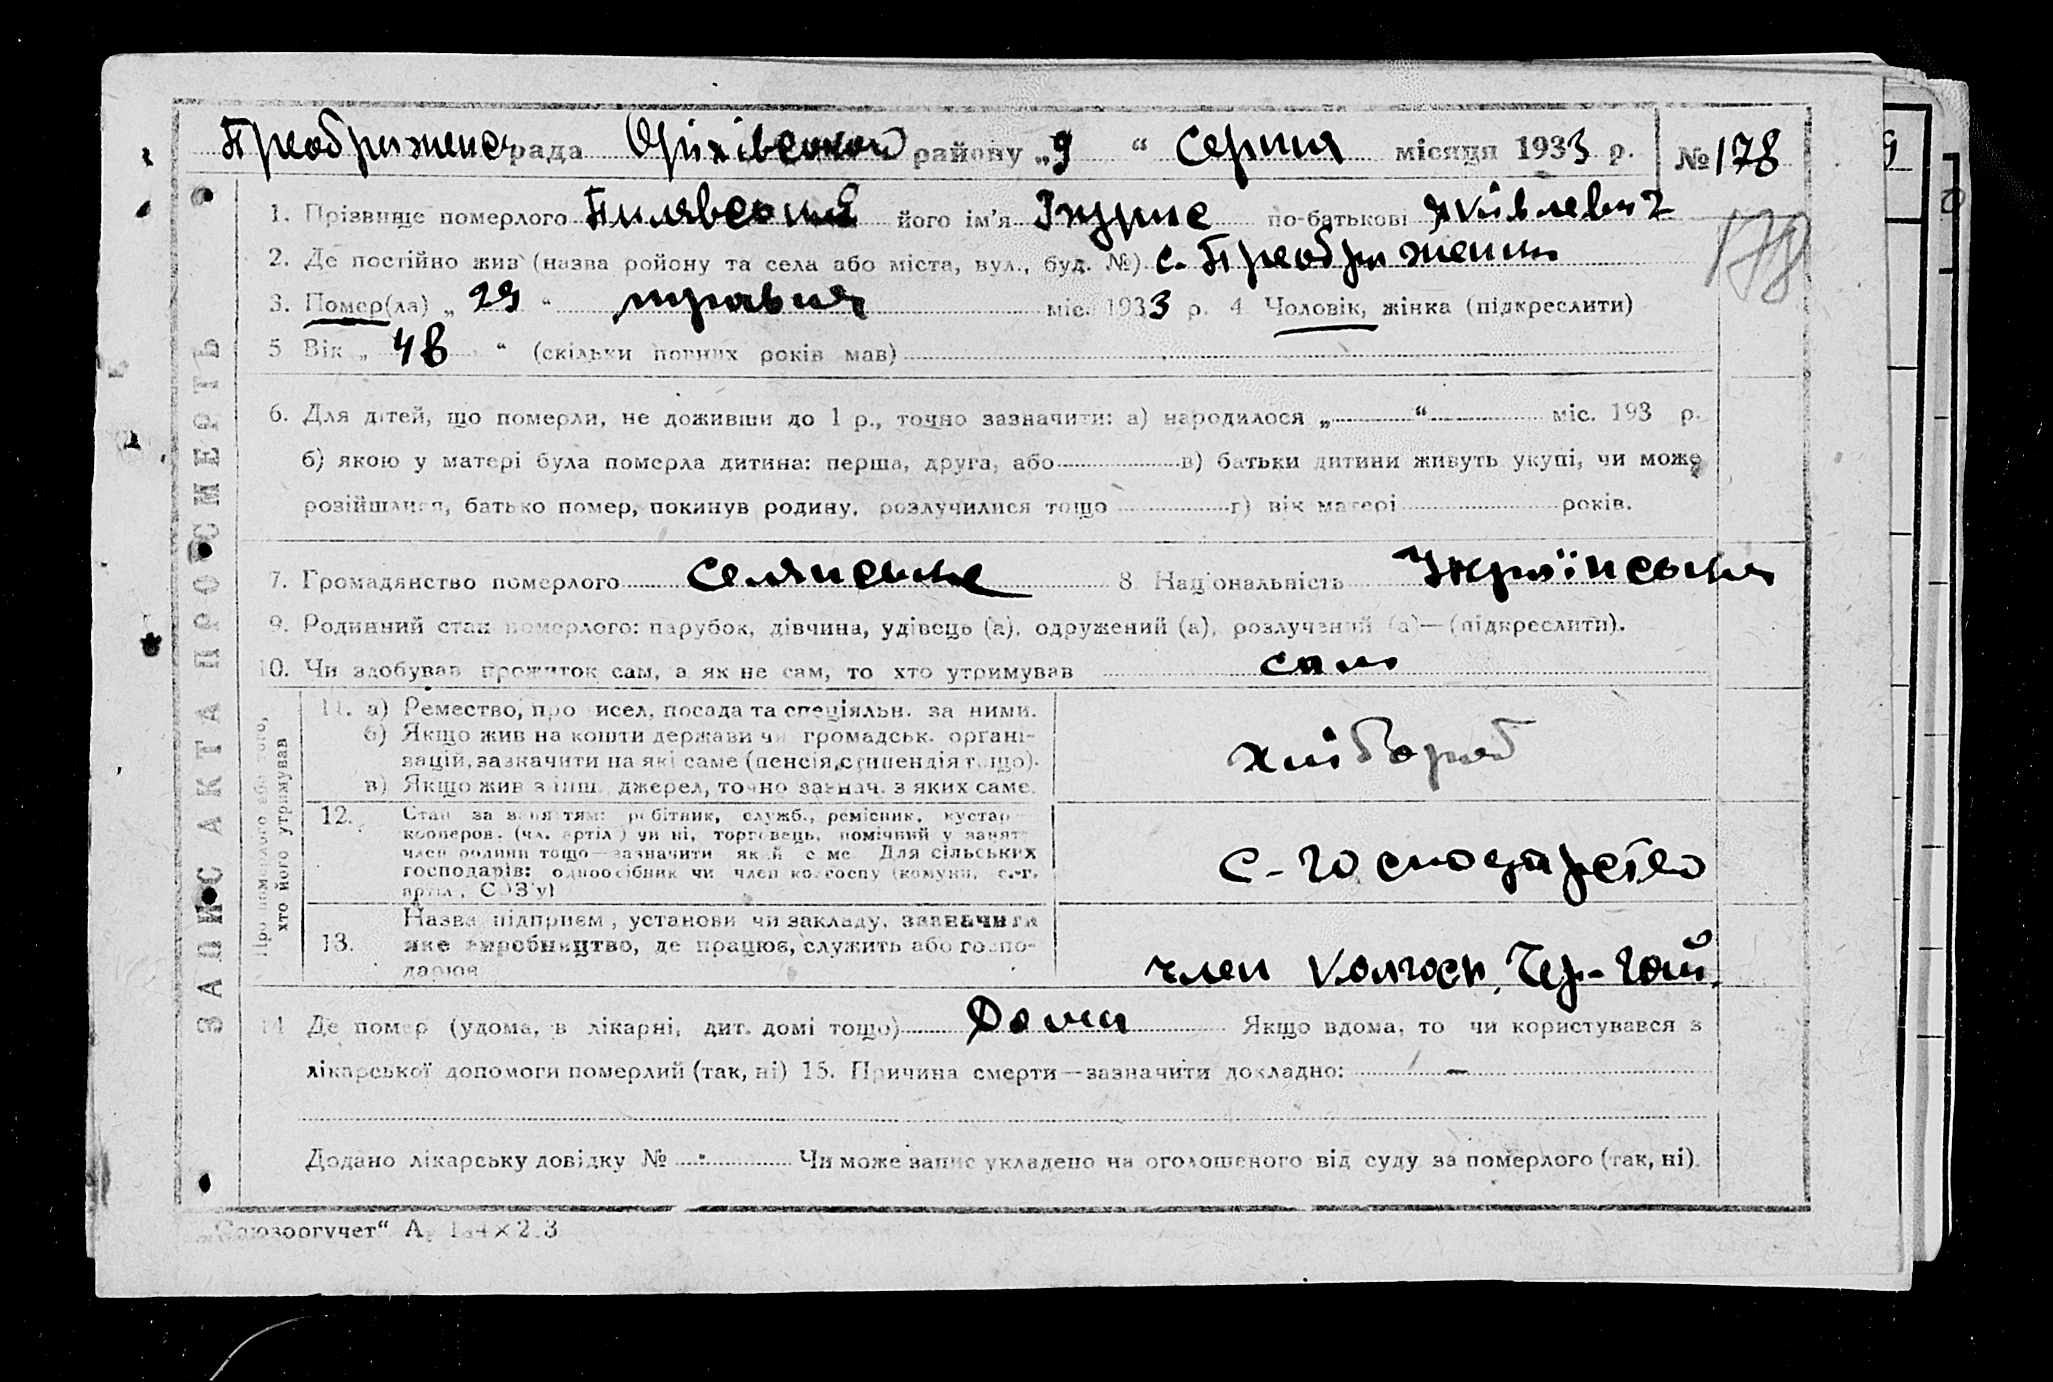 Преображенс рада Оріхівської району „9 “ Серпня місяця 1933 р. № 178
1. Прізвище померлого Пилявський його ім'я по-батькові Яківлевич
2. Де постійно жив (назва ройону та села або міста, вул., буд. №) с. Преображенка
178
3. Помер(ла) „ 29 “ травня міс. 1933 р. 4 Чоловік, жінка (підкреслити)
5 Вік „ 48 “ (скільки повних років мав)
6. Для дітей, що померли, не доживши до 1 р., точно зазначити: а) народилося „ “ міс. 193 р.
б) якою у матері була померла дитина: перша, друга, або в) батьки дитини живуть укупі, чи може
розійшлися, батько помер, покинув родину, розлучилися тощо г) вік матері років.
7. Громадянство померлого Селянське 8. Національність Українська
9. Родинний стан померлого: парубок, дівчина, удівець (а), одружений (а), розлучений (а)—(підкреслити).
10. Чи здобував прожиток сам, а як не сам, то хто утримував сам
ЗАПИС АКТА ПРО СМЕРТЬ
Про померлого або того,
хто його утримував
11. а) Ремество, про исел, посада та спеціяльн. за ними.
б) Якщо жив на кошти держави чи громадськ. органі-
зацій, зазначити на які саме (пенсія, стипендія тощо).
в) Якщо жив з інш. джерел, точно зазнач. з яких саме.
хлібороб
12. Стан за заняттям: робітник, служб., ремісник, кустар
кооперов. (чл. артіл.) чи ні, торговець, помічний у занят.
член родини тощо—зазначити який саме Для сільських
господарів: одноосібник чи член колгоспу (комуни, с.-г.
артіл., СОЗ'у)
с-господарство
13. Назва підприєм, установи чи закладу, зазначити
яке виробництво, де працює, служить або госпо-
дарює
член колгосп. Чер-Гай.
14 Де помер (удома, в лікарні, дит. домі тощо) Дома Якщо вдома, то чи користувався з
лікарської допомоги померлий (так, ні) 15. Причина смерти—зазначити докладно: —
Додано лікарську довідку № - Чи може запис укладено на оголошеного від суду за померлого (так, ні).
„Союзоргучет“